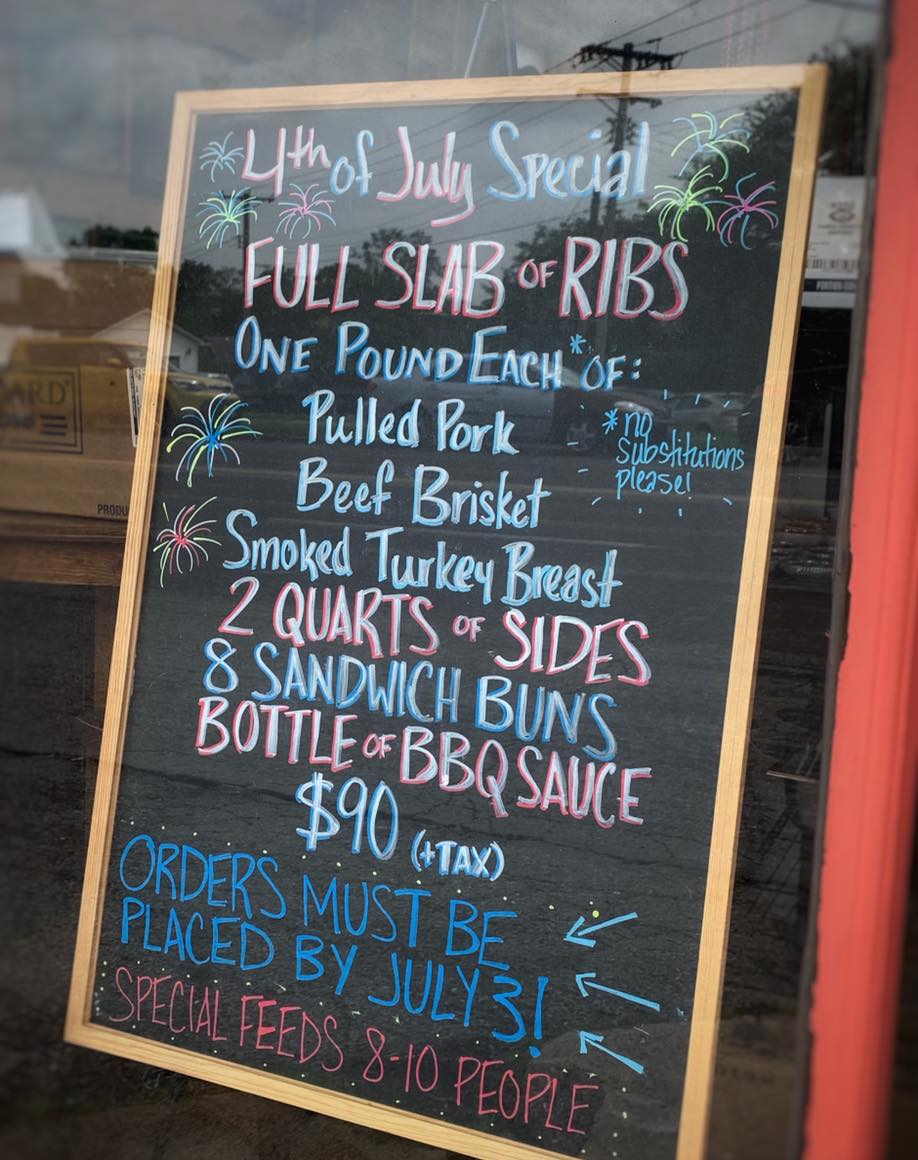 4th of July Special
FULL SLAB OF RIBS
ONE POUND EACH* OF:
Pulled Pork
*no
substitutions
please!
Beef Brisket
Smoked Turkey Breast
2 QUARTS OF SIDES
8 SANDWICH BUNS
BOTTLE OF BBQ SAUCE
$90 (+TAX)
ORDERS MUST BE
PLACED BY JULY 3!
SPECIAL FEEDS 8-10 PEOPLE
ARD
PRODU